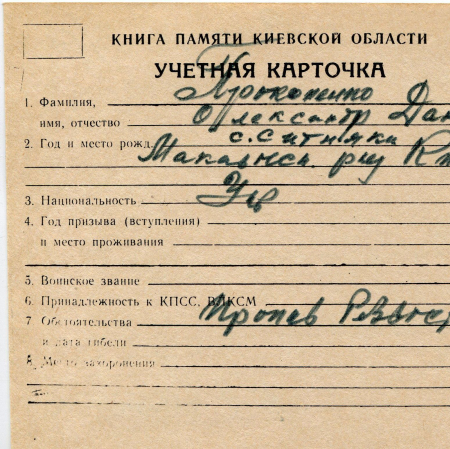 КНИГА ПАМЯТИ КИЕВСКОЙ ОБЛАСТИ
УЧЕТНАЯ КАРТОЧКА
1. Фамилия, Прокопенко
имя, отчество Олександр Дан
2. Год и место рожд. с. Ситняки
Макавись. рну К
3. Национальность Укр
4. Год призыва (вступления)
и место проживания
5. Воинское звание
6. Принадлежность к КПСС, ВЛКСМ
7. Обстоятельства Пропав
и дата гибели
8. Место захоронения